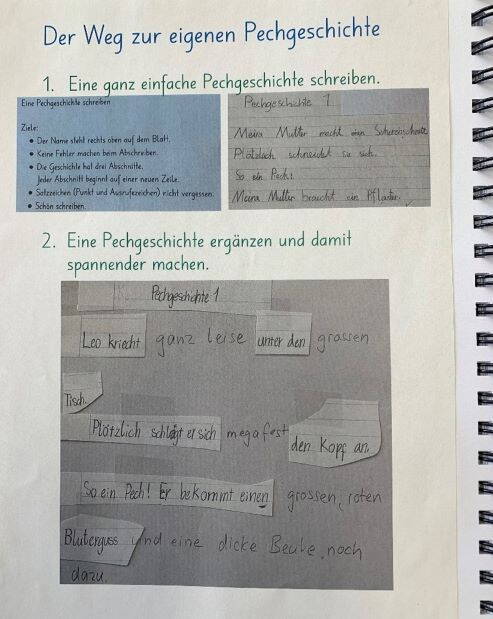 Der Weg zur eigenen Pechgeschichte
1. Eine ganz einfache Pechgeschichte schreiben.
Eine Pechgeschichte schreiben
Ziele:
• Der Name steht rechts oben auf dem Blatt.
• Keine Fehler machen beim Abschreiben.
• Die Geschichte hat drei Abschnitte.
Jeder Abschnitt beginnt auf einer neuen Zeile.
• Satzzeichen (Punkt und Ausrufezeichen) nicht vergessen.
• Schön schreiben.
Pechgeschichte 1
Meine Mutter macht einen Scherenschnitt
Plötzlich schneidet sie sich.
So ein Pech!
Meine Mutter braucht ein Pflaster.
2. Eine Pechgeschichte ergänzen und damit
spannender machen.
Pechgeschichte 1
Leo kriecht ganz leise unter den grossen
Tisch.
Plötzlich schlägt er sich megafest den Kopf an.
So ein Pech! Er bekommt einen grossen, roten
Bluterguss und eine dicke Beule, noch
dazu.